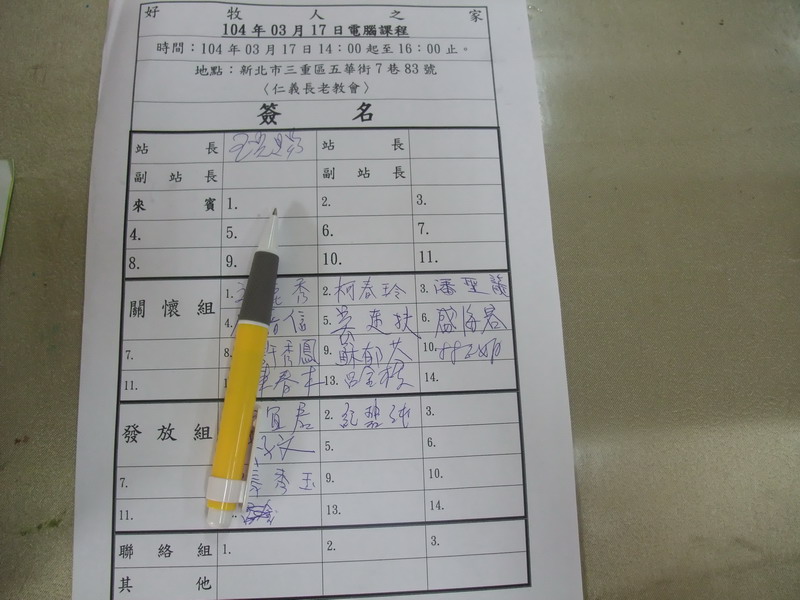 好牧人之家
104年03月17日電腦課程
時間：104年03月17日14：00起至16：00止。
地點：新北市三重區五華街7巷83號
〈仁義長老教會〉
簽名
站長 站長
副站長 副站長
來賓 1. 2. 3.
4. 5. 6. 7.
8. 9. 10. 11.
關懷組 1. 秀 2.柯春玲 3.潘
4. 信 5. 6.
7. 8.許秀鳳 9.蘇郁芬 10.
11. 春 13.呂金 14.
發放組 宜 2.紀 3.
文 5. 6.
7. 秀玉 9. 10.
11. 13. 14.
聯絡組 1. 2. 3.
其他